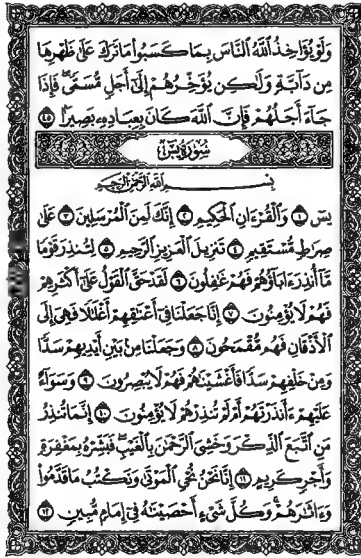 وَلَوْ يُؤَاخِذُ اللَّهُ النَّاسَ بِمَا كَسَبُوا مَا تَرَكَ عَلَىٰ ظَهْرِهَا
مِن دَآبَّةٍ وَلَٰكِن يُؤَخِّرُهُمْ إِلَىٰ أَجَلٍ مُّسَمًّى فَإِذَا
جَآءَ أَجَلُهُمْ فَإِنَّ اللَّهَ كَانَ بِعِبَادِهِ بَصِيرًا ٤٥
سُورَةُ يسٓ
بِسْمِ اللَّهِ الرَّحْمَٰنِ الرَّحِيمِ
يسٓ ١ وَالْقُرْءَانِ الْحَكِيمِ ٢ إِنَّكَ لَمِنَ الْمُرْسَلِينَ ٣ عَلَىٰ
صِرَاطٍ مُّسْتَقِيمٍ ٤ تَنزِيلَ الْعَزِيزِ الرَّحِيمِ ٥ لِتُنذِرَ قَوْمًا
مَّآ أُنذِرَ ءَابَآؤُهُمْ فَهُمْ غَٰفِلُونَ ٦ لَقَدْ حَقَّ الْقَوْلُ عَلَىٰٓ أَكْثَرِهِمْ
فَهُمْ لَا يُؤْمِنُونَ ٧ إِنَّا جَعَلْنَا فِىٓ أَعْنَٰقِهِمْ أَغْلَٰلًا فَهِىَ إِلَى
الْأَذْقَانِ فَهُم مُّقْمَحُونَ ٨ وَجَعَلْنَا مِنۢ بَيْنِ أَيْدِيهِمْ سَدًّا
وَمِنْ خَلْفِهِمْ سَدًّا فَأَغْشَيْنَٰهُمْ فَهُمْ لَا يُبْصِرُونَ ٩ وَسَوَآءٌ
عَلَيْهِمْ ءَأَنذَرْتَهُمْ أَمْ لَمْ تُنذِرْهُمْ لَا يُؤْمِنُونَ ١٠ إِنَّمَا تُنذِرُ
مَنِ اتَّبَعَ الذِّكْرَ وَخَشِىَ الرَّحْمَٰنَ بِالْغَيْبِ فَبَشِّرْهُ بِمَغْفِرَةٍ
وَأَجْرٍ كَرِيمٍ ١١ إِنَّا نَحْنُ نُحْىِ الْمَوْتَىٰ وَنَكْتُبُ مَا قَدَّمُوا
وَءَاثَٰرَهُمْ وَكُلَّ شَىْءٍ أَحْصَيْنَٰهُ فِىٓ إِمَامٍ مُّبِينٍ ١٢